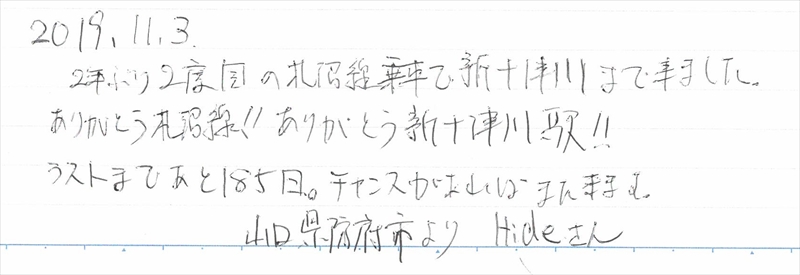 2019.11.3.
2年ぶり2度目の札沼線乗車で新十津川まで来ました。
ありがとう札沼線!!ありがとう新十津川駅!!
ラストまであと185日。チャンスがあればまた来ます。
山口県防府市より Hideさん